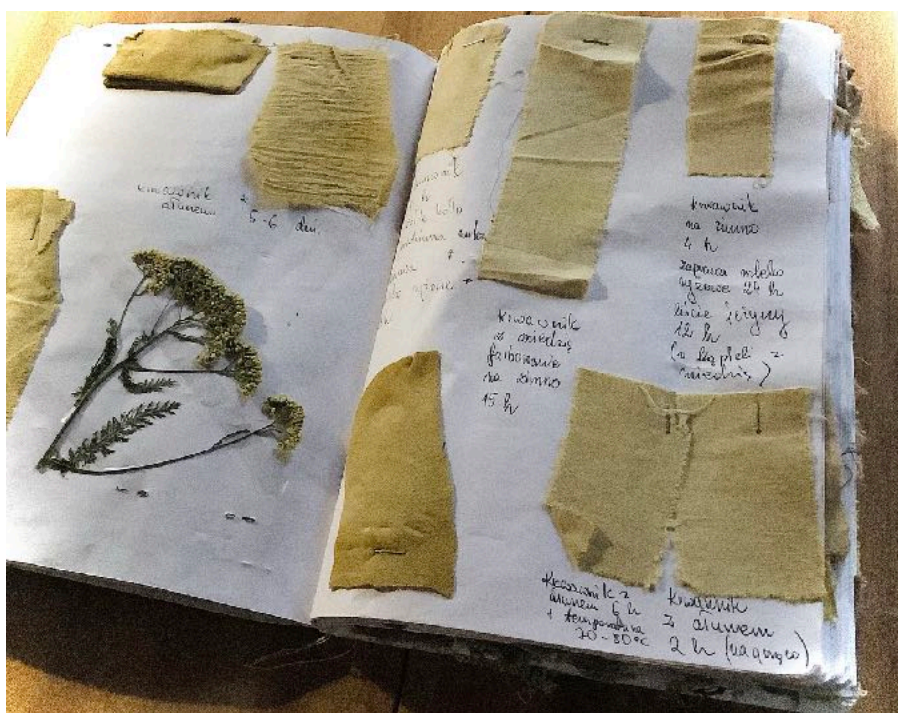 krwawnik z
ałunem 5-6 dni.
krwawnik
z miedzią
farbowanie
na zimno
15 h
krwawnik
na zimno
4 h
zaprawa mleko
ryżowe 24 h
liście jeżyny
12 h
(w kąpieli z
miedzią)
Krwawnik z
ałunem 6 h
+ temperatura
70-80°C
Krwawnik
z ałunem
2 h (na gorąco)